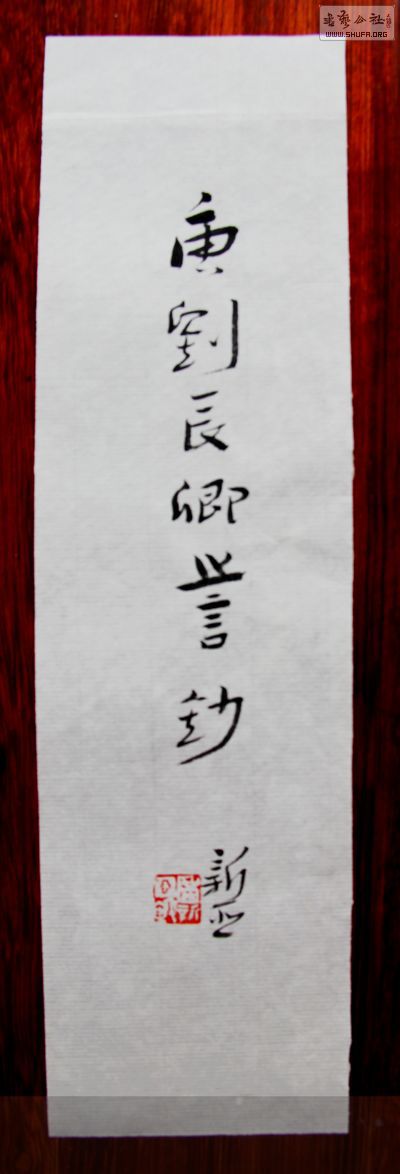 書藝公社
WWW.SHUFA.ORG
唐劉長卿詩鈔
新亚